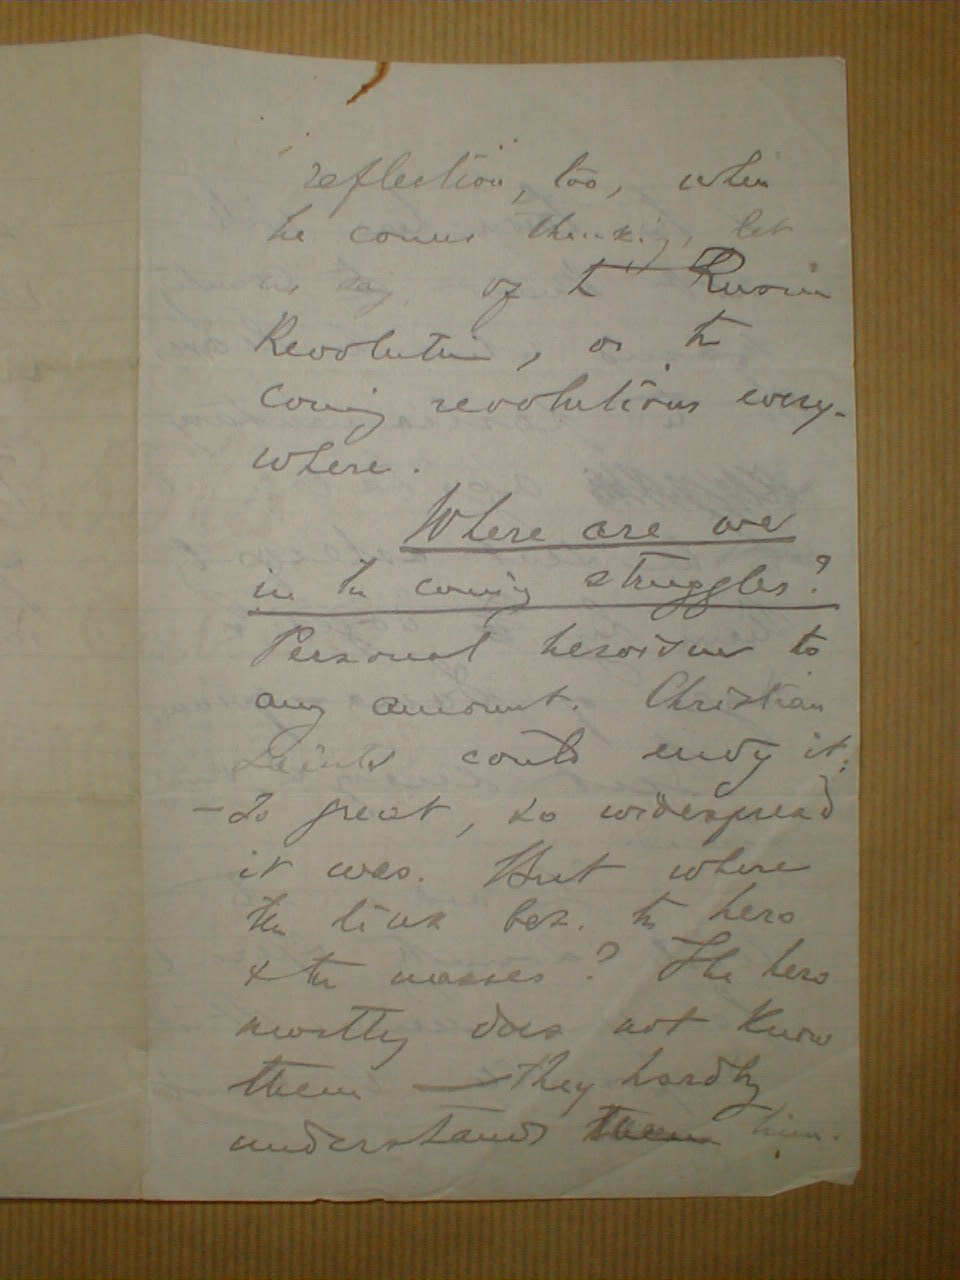 reflection, too, when
he comes thinking, let
us say, of th Russian
Revolution, or th
coming revolutions every-
where.
Where are we
in th coming struggles?
Personal heroism to
any amount. Christian
Saints could envy it;
— So great, so widespread
it was. But where
the link bet. th hero
& th masses? The hero
mostly does not know
them — they hardly
understand them him.